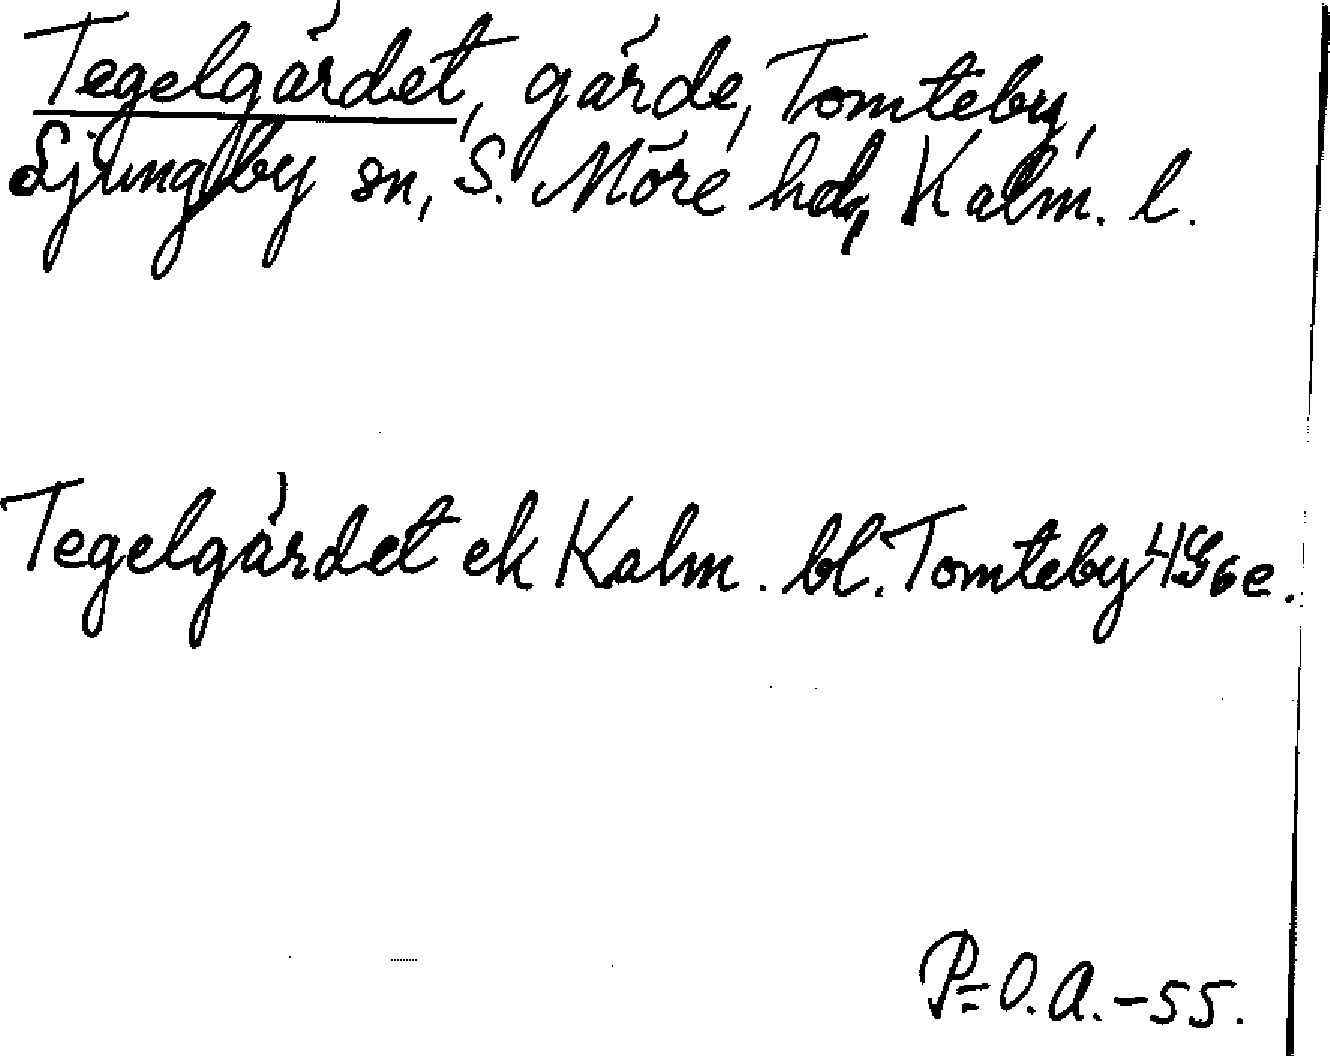 Tegelgärdet, gärde, Tomteby,
Ljungby sn, S. Möre hd, Kalm. l.
Tegelgärdet ek Kalm. bl. Tomteby 4G6e.
P-O.A.-55.